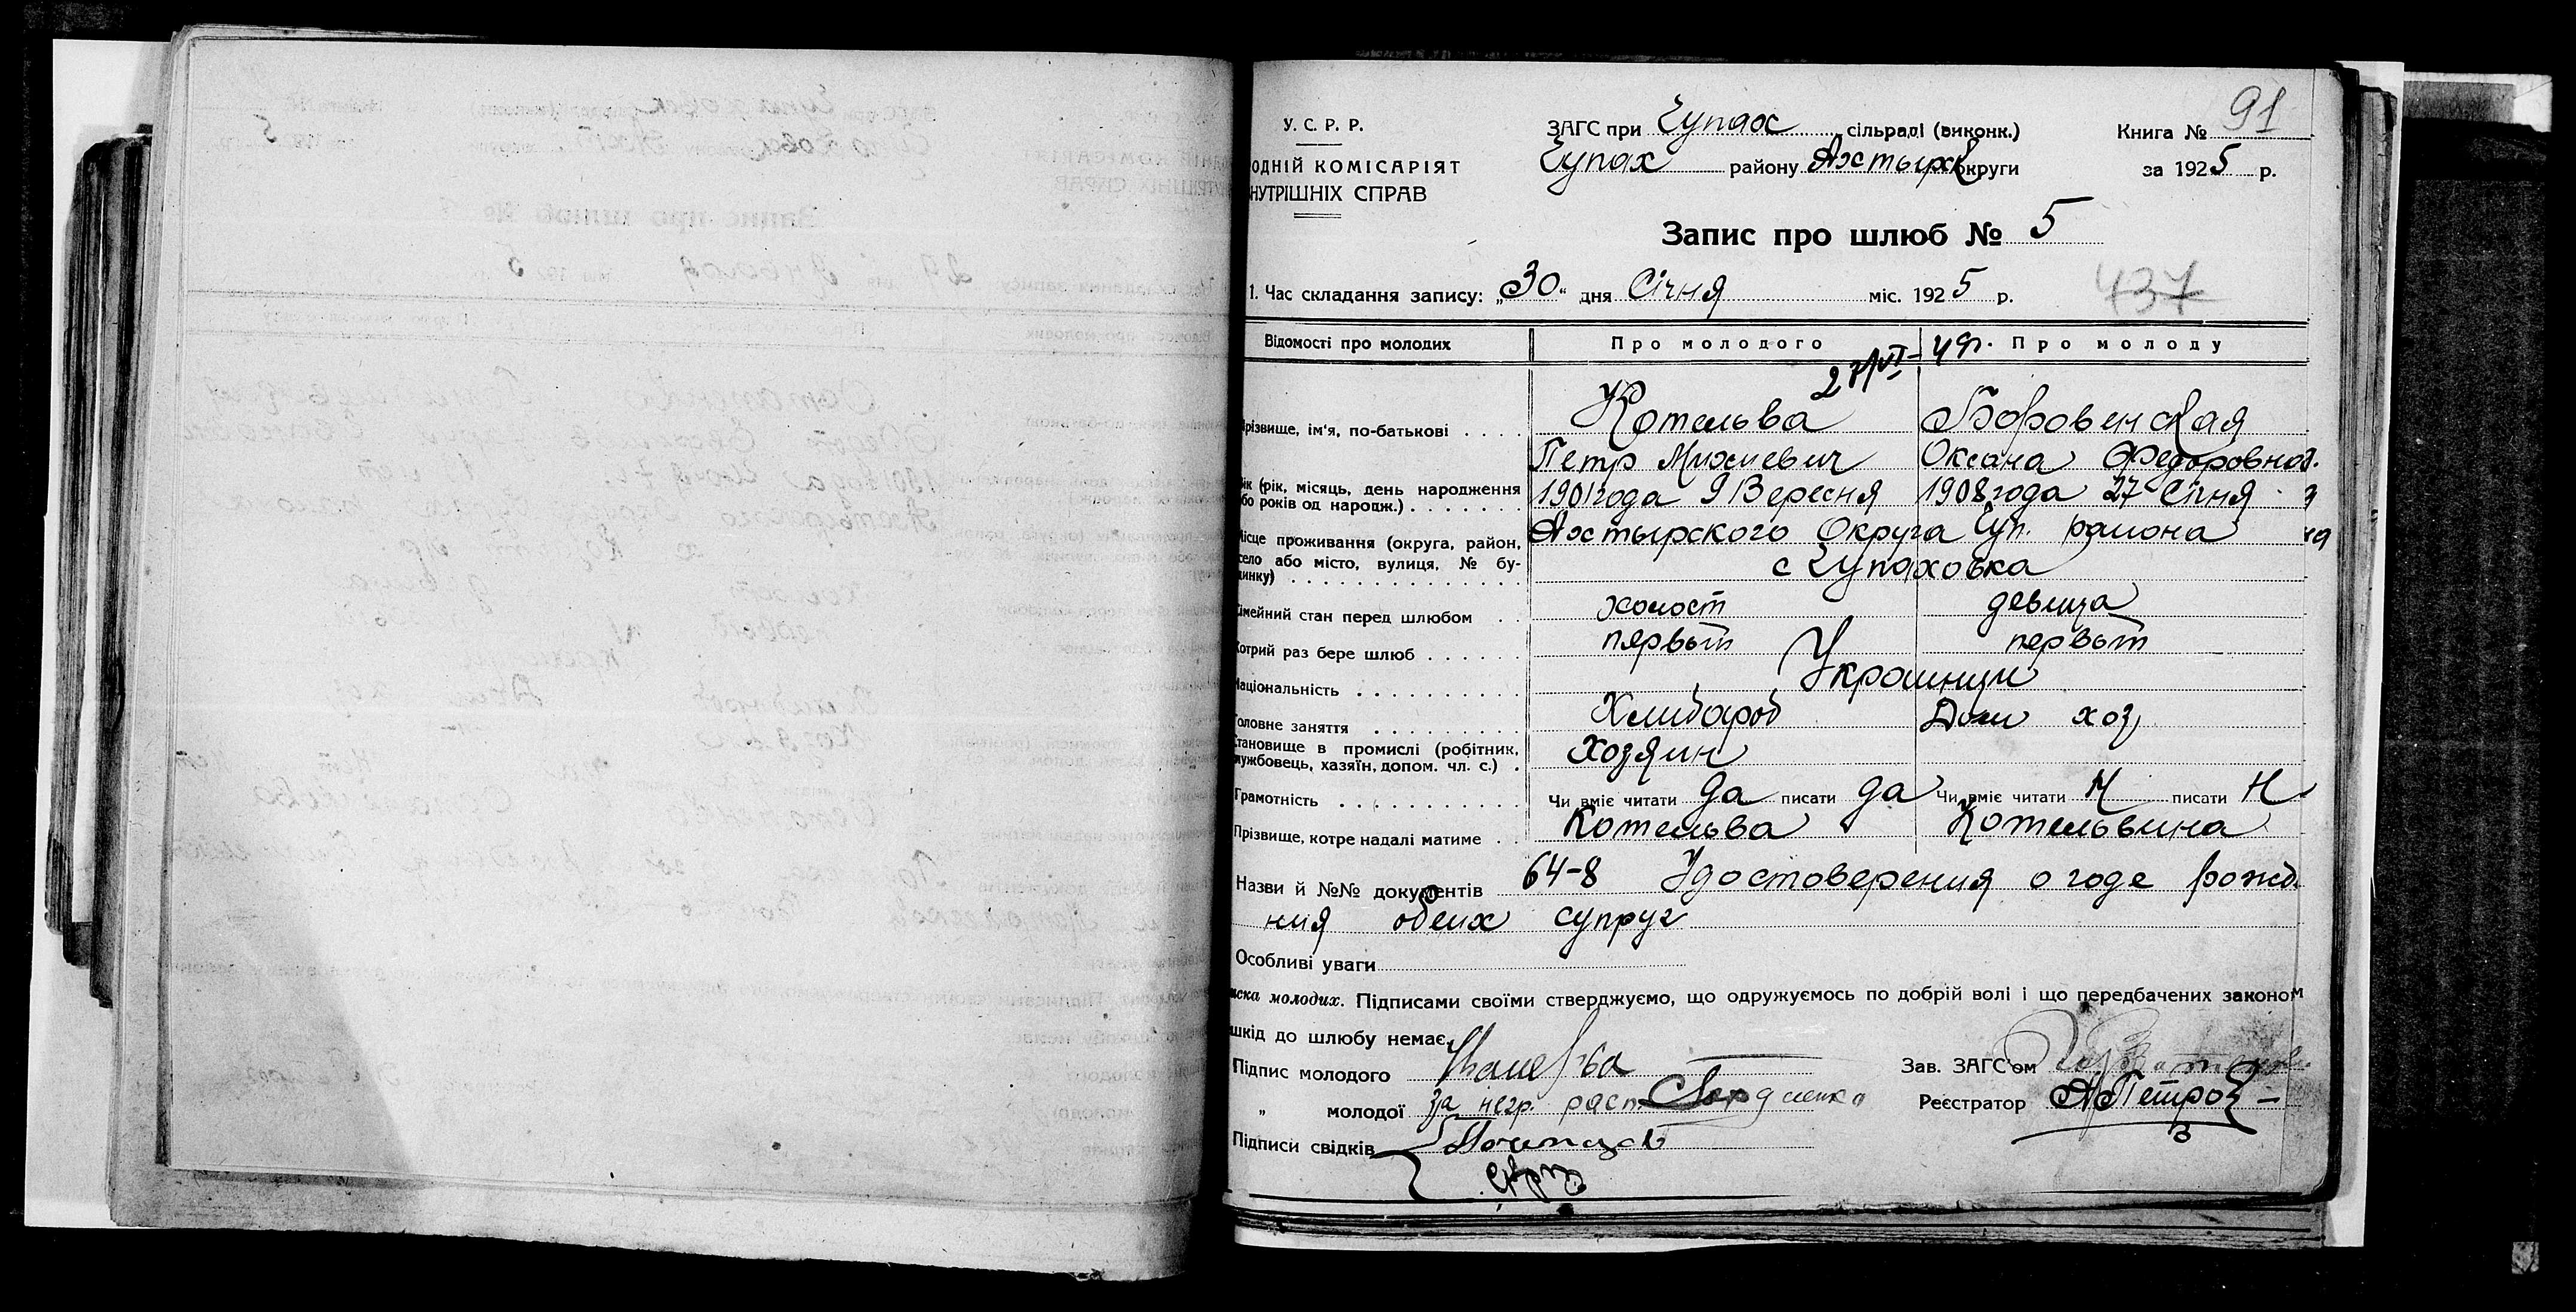 91
У. С. Р. Р.
ЗАГС при Чупах сільраді (виконк.)
Книга №
ОДНІЙ КОМІСАРІЯТ
Чупах району Ахтырк округи
за 1925 р.
НУТРІШНІХ СПРАВ
Запис про шлюб № 5
1. Час складання запису: „30“ дня Січня міс. 1925 р.
437
Відомості про молодих
Про молодого
Про молоду
різвище, ім'я, по-батькові
Котельва
Боровенская
Петр Михиевич
Оксана Федоровна
ік (рік, місяць, день народження
бо років од народж.)
1901 года 9 Вересня
1908 года 27 Січня
ісце проживання (округа, район,
село або місто, вулиця, № бу-
динку)
Ахтырского Округа Чуп. района
с Чупаховка
імейний стан перед шлюбом
холост
девица
отрий раз бере шлюб
первый
первый
Національність
Украинцы
Головне заняття
Хлибароб
Дом хоз
тановище в промислі (робітник,
лужбовець, хазяїн, допом. чл. с.)
Хозяин
Грамотність
Чи вміє читати да писати да
Чи вміє читати Н писати Н
Прізвище, котре надалі матиме
Котельва
Котельвина
Назви й №№ документів 64-8 Удостоверения о годе рожд
ния обеих супруг
Особливі уваги
иска молодих. Підписами своїми стверджуємо, що одружуємось по добрій волі і що передбачених законом
шкід до шлюбу немає.
Підпис молодого
Зав. ЗАГС'ом
„ молодої за негр. расп.
Реєстратор АПетров
Підписи свідків